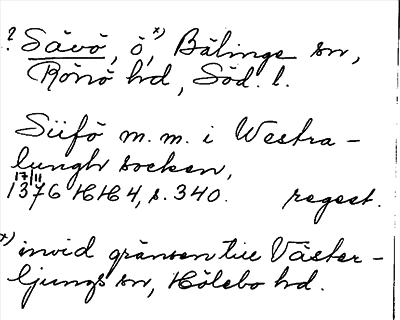 ? Sävö, ö,x) Bälinge sn,
Rönö hd, Söd. l.
Siifö m. m. i Westra-
lungh socken,
17/11
1376 HH4, s. 340. regest.
x) invid gränsen till Väster-
ljungs sn, Hölebo hd.